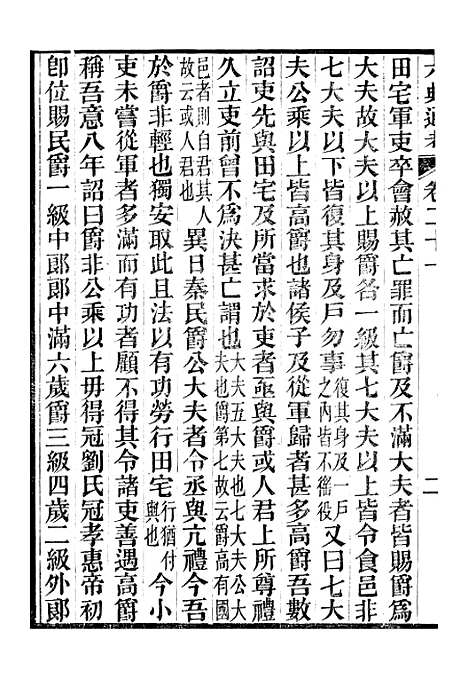 六典通考 卷二十一 二
田宅軍吏卒會赦其亡罪而亡爵及不滿大夫者皆賜爵爲
大夫故大夫以上賜爵各一級其七大夫以上皆令食邑非
七大夫以下皆復其身及戶勿事復其身及一戶之內皆不徭役又曰七大
夫公乘以上皆高爵也諸侯子及從軍歸者甚多高爵吾數
詔吏先與田宅及所當求於吏者亟與爵或人君上所尊禮
久立吏前曾不爲決甚亡謂也大夫五大夫也七大夫公大夫也爵第七故云高爵有國
邑者則自君其人故云或人君也異日秦民爵公大夫者令丞與亢禮今吾
於爵非輕也獨安取此且法以有功勞行田宅行猶付與也今小
吏未嘗從軍者多滿而有功者顧不得其令諸吏善遇高爵
稱吾意八年詔曰爵非公乘以上毋得冠劉氏冠孝惠帝初
卽位賜民爵一級中郞郞中滿六歲爵三級四歲二級外郞